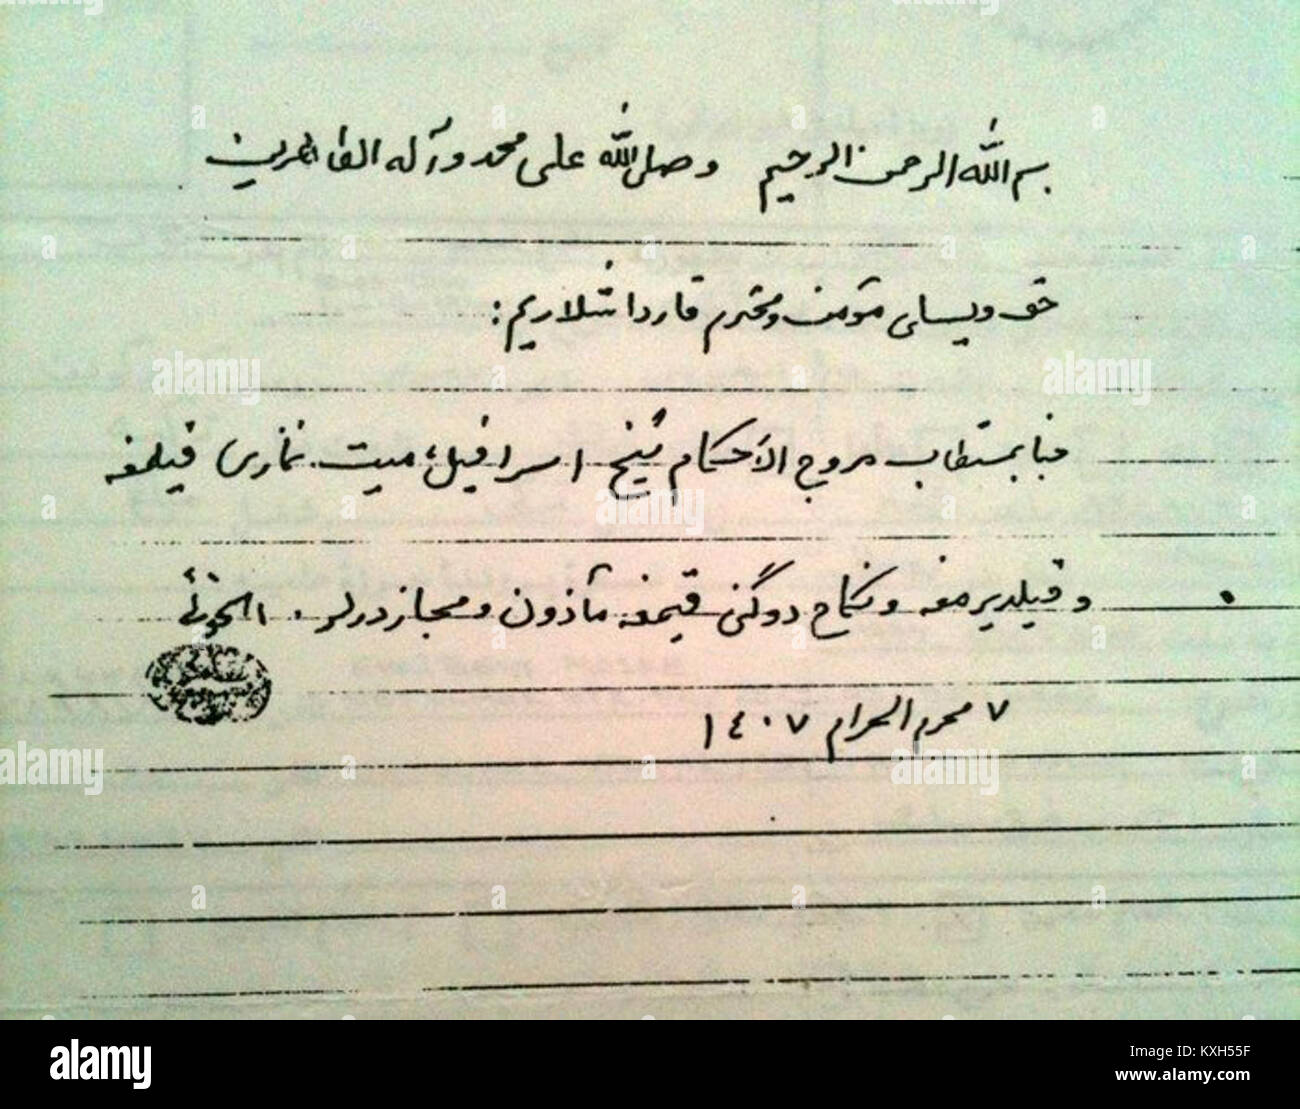 بسم الله الرحمن الرحیم وصلی الله علی محمد وآله الطاهرین
حق و یسلی مؤمن و محترم قارداشلاریم:
جنابمستطاب مروج الأحکام شیخ اسرافیل، میت نمازی قیلمغه
و قیلدیرمغه و نکاح دوگنی قیمغه مأذون و مجازدرلر. الخوئی
٧ محرم الحرام ١٤٠٧
alamy
Image ID: KXH55F
www.alamy.com